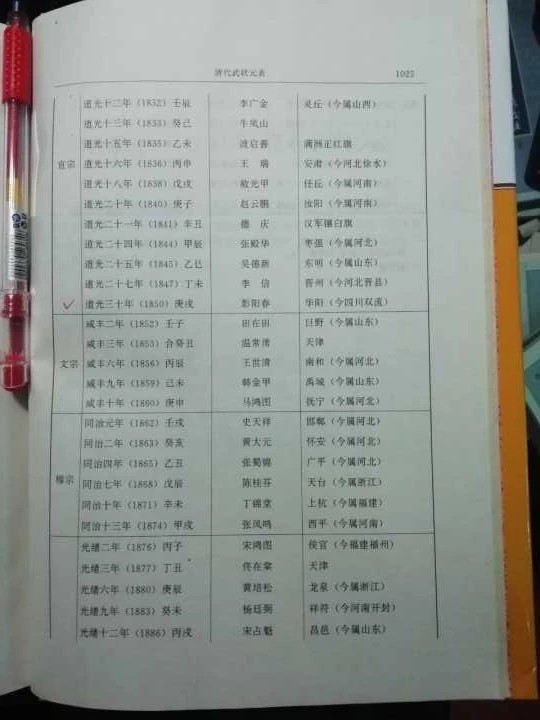 清代武状元表 1025
道光十二年（1832）壬辰 李广金 灵丘（今属山西）
道光十三年（1833）癸巳 牛凤山
道光十五年（1835）乙未 波启善 满洲正红旗
宣宗 道光十六年（1836）丙申 王瑞 安肃（今河北徐水）
道光十八年（1838）戊戌 郝光甲 任丘（今属河南）
道光二十年（1840）庚子 赵云鹏 汝阳（今属河南）
道光二十一年（1841）辛丑 德庆 汉军镶白旗
道光二十四年（1844）甲辰 张殿华 枣强（今属河北）
道光二十五年（1845）乙巳 吴德新 东明（今属山东）
道光二十七年（1847）丁未 李信 晋州（今河北晋县）
道光三十年（1850）庚戌 彭阳春 华阳（今四川双流）
咸丰二年（1852）壬子 田在田 巨野（今属山东）
咸丰三年（1853）合癸丑 温常涌 天津
文宗 咸丰六年（1856）丙辰 王世清 南和（今属河北）
咸丰九年（1859）己未 韩金甲 禹城（今属山东）
咸丰十年（1860）庚申 马鸿图 抚宁（今属河北）
同治元年（1862）壬戌 史天祥 邯郸（今属河北）
同治二年（1863）癸亥 黄大元 怀安（今属河北）
同治四年（1865）乙丑 张蜀锦 广平（今属河北）
穆宗 同治七年（1868）戊辰 陈桂芬 天台（今属浙江）
同治十年（1871）辛未 丁锦堂 上杭（今属福建）
同治十三年（1874）甲戌 张凤鸣 西平（今属河南）
光绪二年（1876）丙子 宋鸿图 侯官（今福建福州）
光绪三年（1877）丁丑 佟在棠 天津
光绪六年（1880）庚辰 黄培松 龙泉（今属浙江）
光绪九年（1883）癸未 杨廷弼 祥符（今河南开封）
光绪十二年（1886）丙戌 宋占魁 昌邑（今属山东）